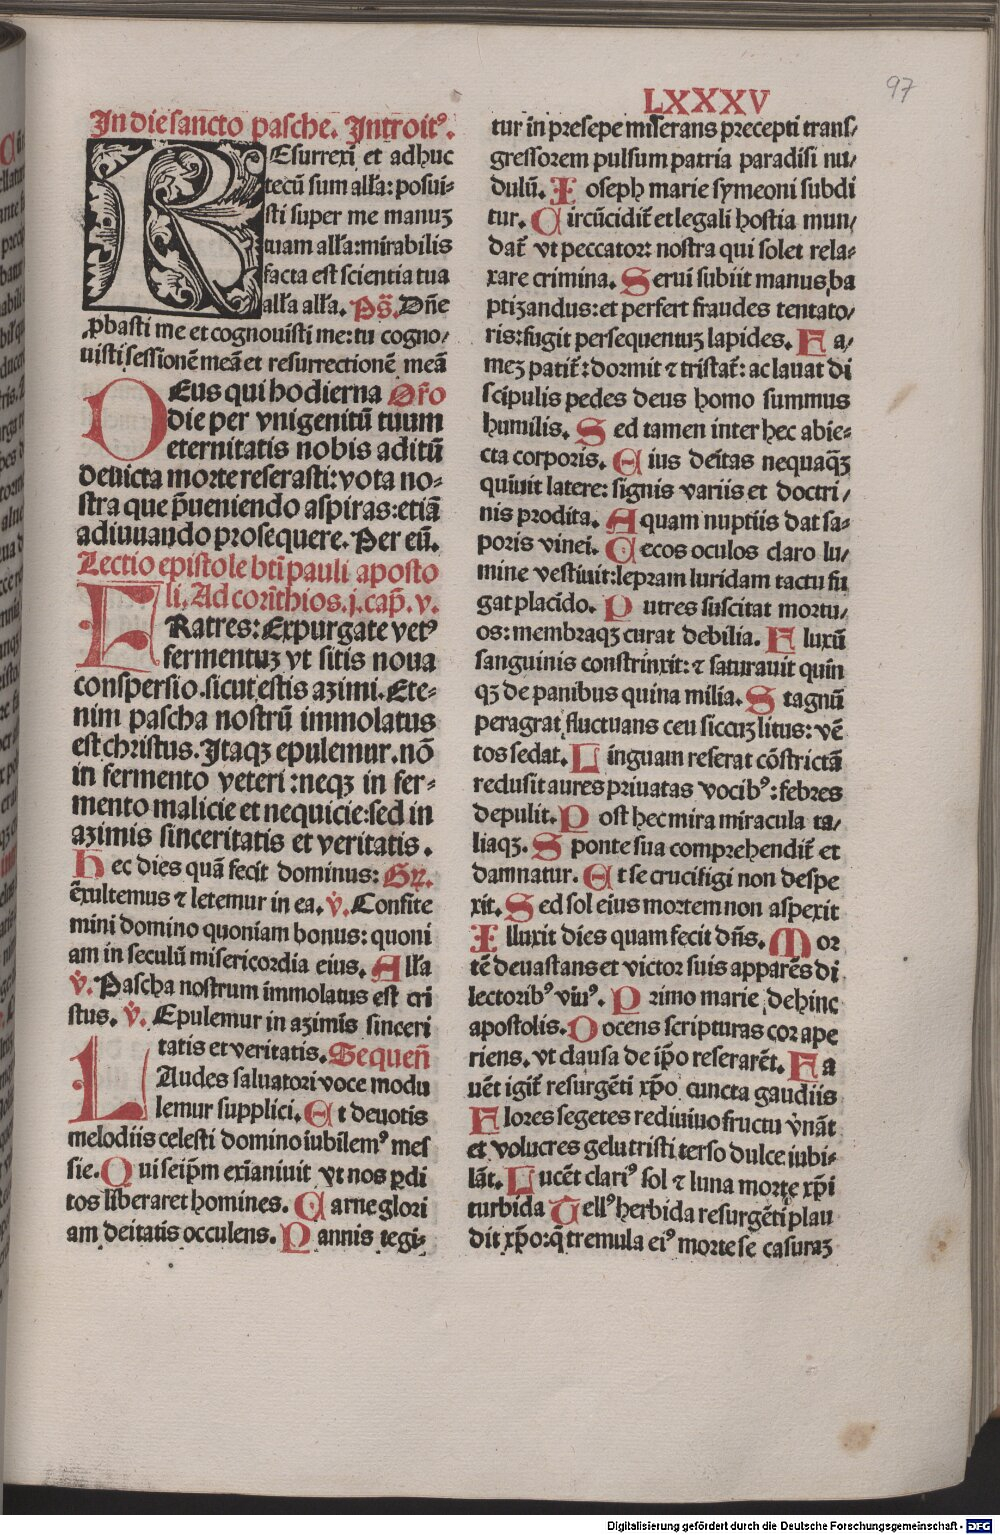 97
LXXXV
In die sancto pasche. Introitꝰ.
REsurrexi et adhuc
tecū sum alľa: posui-
sti super me manuꝫ
tuam alľa: mirabilis
facta est scientia tua
alľa alľa. Ps̄. Dn̄e
ꝓbasti me et cognouisti me: tu cogno/
uisti sessionē meā et resurrectionē meā
DEus qui hodierna Or̄o
die per vnigenitū tuum
eternitatis nobis aditū
deuicta morte reserasti: vota no-
stra que p̄ueniendo aspiras: etiā
adiuuando prosequere. Per eū.
Lectio epistole bt̄i pauli aposto
li. Ad corin̄thios. j. cap̄. v.
FRatres: Expurgate vetꝰ
fermentuꝫ vt sitis noua
conspersio. sicut estis azimi. Ete-
nim pascha nostrū immolatus
est christus. Itaqꝫ epulemur. nō
in fermento veteri: neqꝫ in fer-
mento malicie et nequicie: sed in
azimis sinceritatis et veritatis.
Hec dies quā fecit dominus: Gꝛ.
exultemus ⁊ letemur in ea. v̄. Confite
mini domino quoniam bonus: quoni
am in seculū misericordia eius. Alľa
v̄. Pascha nostrum immolatus est cri
stus. v̄. Epulemur in azimis sinceri
tatis et veritatis. Sequen̄
LAudes saluatori voce modu
lemur supplici. Et deuotis
melodiis celesti domino iubilemꝰ mes
sie. Qui seip̄m exinaniuit vt nos ꝑdi
tos liberaret homines. Carne glori
am deitatis occulens. Pannis tegi-
tur in presepe miserans precepti trans/
gressorem pulsum patria paradisi nu/
dulū. Ioseph marie symeoni subdi
tur. Circūcidit̄ et legali hostia mun/
dat̄ vt peccatorꝝ nostra qui solet rela-
xare crimina. Serui subiit manus ba
ptizandus: et perfert fraudes tentato/
ris: fugit persequentuꝫ lapides. Fa/
meꝫ patit̄: dormit ⁊ tristat̄: ac lauat di
scipulis pedes deus homo summus
humilis. Sed tamen inter hec abie-
cta corporis. Eius deitas nequaqꝫ
quiuit latere: signis variis et doctri/
nis prodita. Aquam nuptiis dat sa-
poris vinei. Cecos oculos claro lu/
mine vestiuit: lepram luridam tactu fu
gat placido. Putres suscitat mortu/
os: membraqꝫ curat debilia. Fluxū
sanguinis constrinxit: ⁊ saturauit quin
qꝫ de panibus quina milia. Stagnū
peragrat fluctuans ceu siccuꝫ litus: vē
tos sedat. Linguam reserat cōstrictā
redusit aures priuatas vocibꝰ: febres
depulit. Post hec mira miracula ta/
liaqꝫ. Sponte sua comprehendit̄ et
damnatur. Et se crucifigi non despe
xit. Sed sol eius mortem non aspexit
Illuxit dies quam fecit dn̄s. Mor
tē deuastans et victor suis apparēs di
lectoribꝰ viuꝰ. Primo marie dehinc
apostolis. Docens scripturas cor ape
riens. vt clausa de ip̄o reserarēt. Fa
uēt igit̄ resurgēti xp̄o cuncta gaudiis
Flores segetes rediuiuo fructu v̄nāt
et volucres gelu tristi terso dulce iubi-
lāt. Lucēt clariꝰ sol ⁊ luna morte xp̄i
turbida Tellꝰ herbida resurgēti plau
dit xp̄o: q̄ tremula eiꝰ morte se casuraꝫ
Digitalisierung gefördert durch die Deutsche Forschungsgemeinschaft - DFG